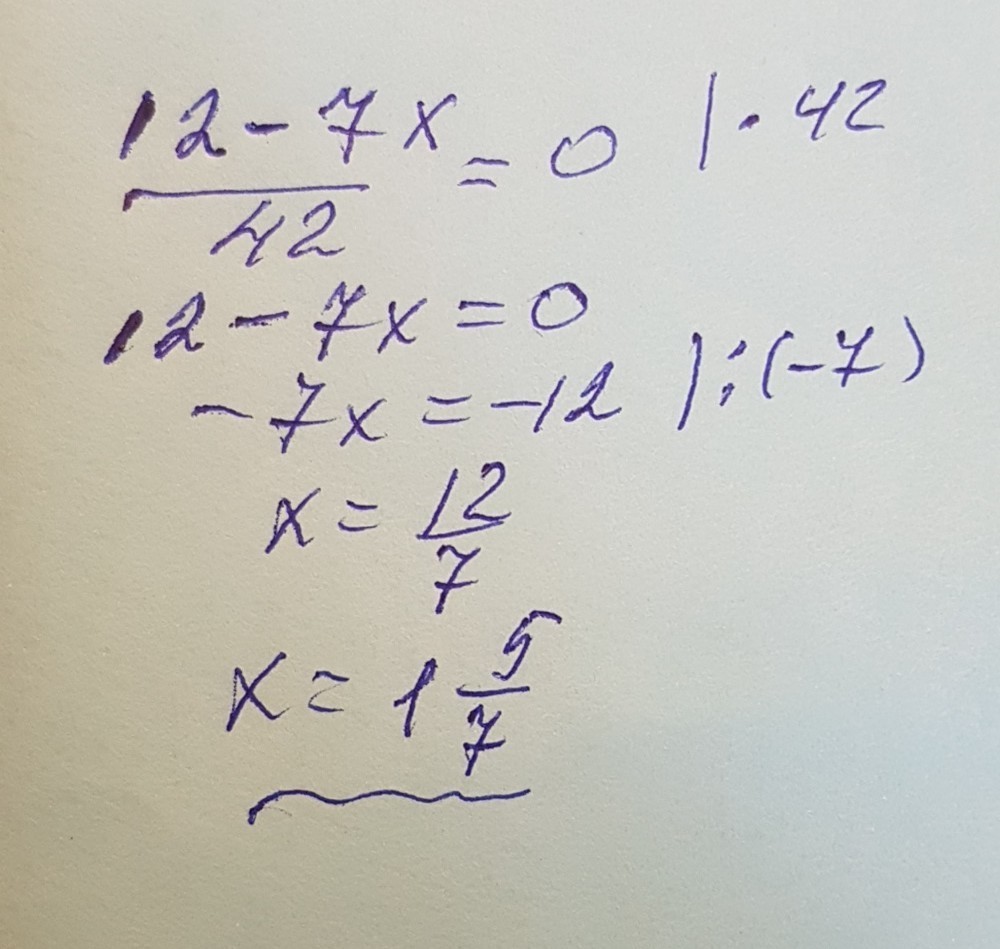 12-7x/42 = 0 | · 42
12 - 7x = 0
-7x = -12 | : (-7)
x = 12/7
x = 1 5/7